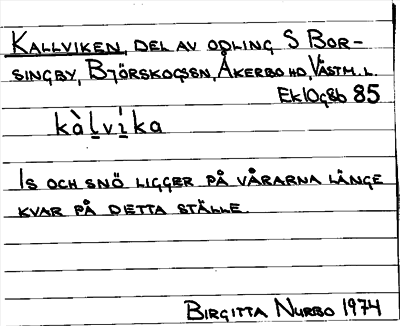 KALLVIKEN, DEL AV ODLING S BOR-
SINGBY, BJÖRSKOGSSN, ÅKERBO HD, VÄSTM. L.
EK 10g8b 85
kàl̠vi̠̍ka
IS OCH SNÖ LIGGER PÅ VÅRARNA LÄNGE
KVAR PÅ DETTA STÄLLE.
BIRGITTA NURBO 1974